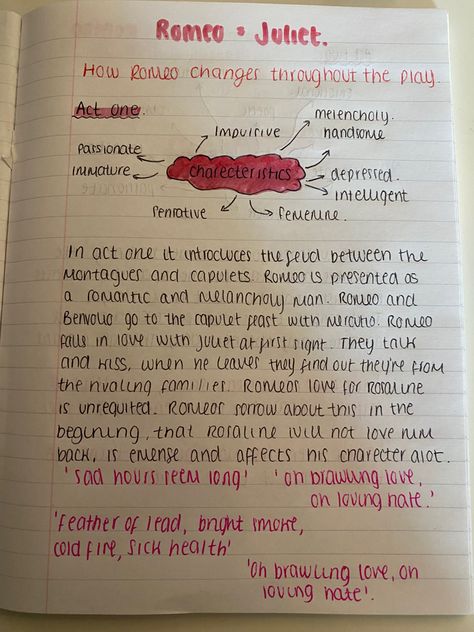 Romeo + Juliet.
How Romeo changes throughout the play.
Act one.
Impulsive
melencholy.
handsome
passionate
immature
charecteristics
depressed.
intelligent
Penrative
femenine.
In act one it introduces the feud between the
Montagues and capulets. Romeo is presented as
a romantic and melancholy man. Romeo and
Benvolio go to the capulet feast with mercutio. Romeo
falls in love with Juliet at first sight. They talk
and kiss, when he leaves they find out they're from
the rivaling families. Romeos love for Rosaline
is unrequited. Romeos sorrow about this in the
begining, that Rosaline will not love him
back, is emense and affects his charecter alot.
'sad hours seem long' 'oh brawling love,
oh loving hate.'
'Feather of lead, bright smoke,
cold fire, sick health'
'Oh brawling love, oh
loving hate'.